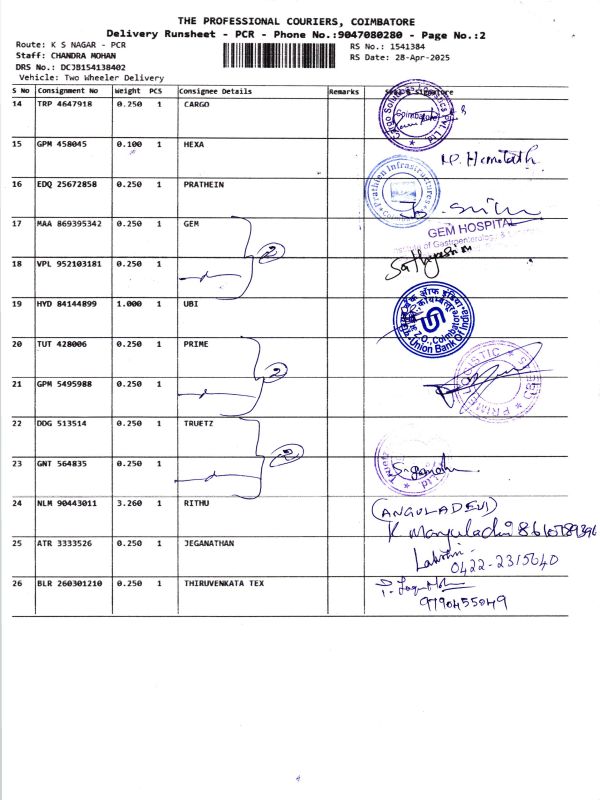 THE PROFESSIONAL COURIERS, COIMBATORE
Delivery Runsheet - PCR - Phone No.:9047080280 - Page No.:2
Route: K S NAGAR - PCR RS No.: 1541384
Staff: CHANDRA MOHAN RS Date: 28-Apr-2025
DRS No.: DCJB154138402
Vehicle: Two Wheeler Delivery
S No Consignment No Weight PCS Consignee Details Remarks
14 TRP 4647918 0.250 1 CARGO
Coimbatore
15 GPM 458045 0.100 1 HEXA
16 EDQ 25672858 0.250 1 PRATHEIN
Prathien Infrastructures
17 MAA 869395342 0.250 1 GEM
2
GEM HOSPITAL
18 VPL 952103181 0.250 1
19 HYD 84144899 1.000 1 UBI
Z.O., Coimbatore
Union Bank Of India
20 TUT 428006 0.250 1 PRIME
2
21 GPM 5495988 0.250 1
22 DDG 513514 0.250 1 TRUETZ
2
23 GNT 564835 0.250 1
24 NLM 90443011 3.260 1 RITHU
(ANGULADEVI)
25 ATR 3333526 0.250 1 JEGANATHAN
0422-2315640
26 BLR 260301210 0.250 1 THIRUVENKATA TEX
9790455049